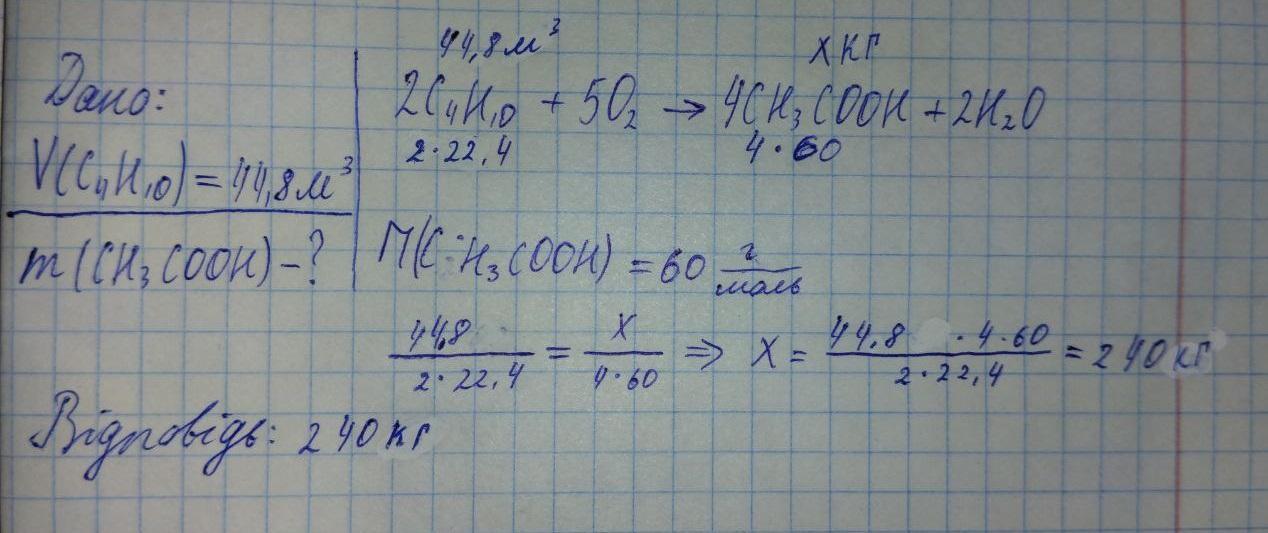 Дано:
V(C₄H₁₀) = 44,8 м³
m(CH₃COOH) - ?
44,8 м³ x кг
2C₄H₁₀ + 5O₂ → 4CH₃COOH + 2H₂O
2·22,4 4·60
M(CH₃COOH) = 60 г/моль
44,8 / 2·22,4 = x / 4·60 ⇒ x = 44,8 · 4·60 / 2·22,4 = 240 кг
Відповідь: 240 кг